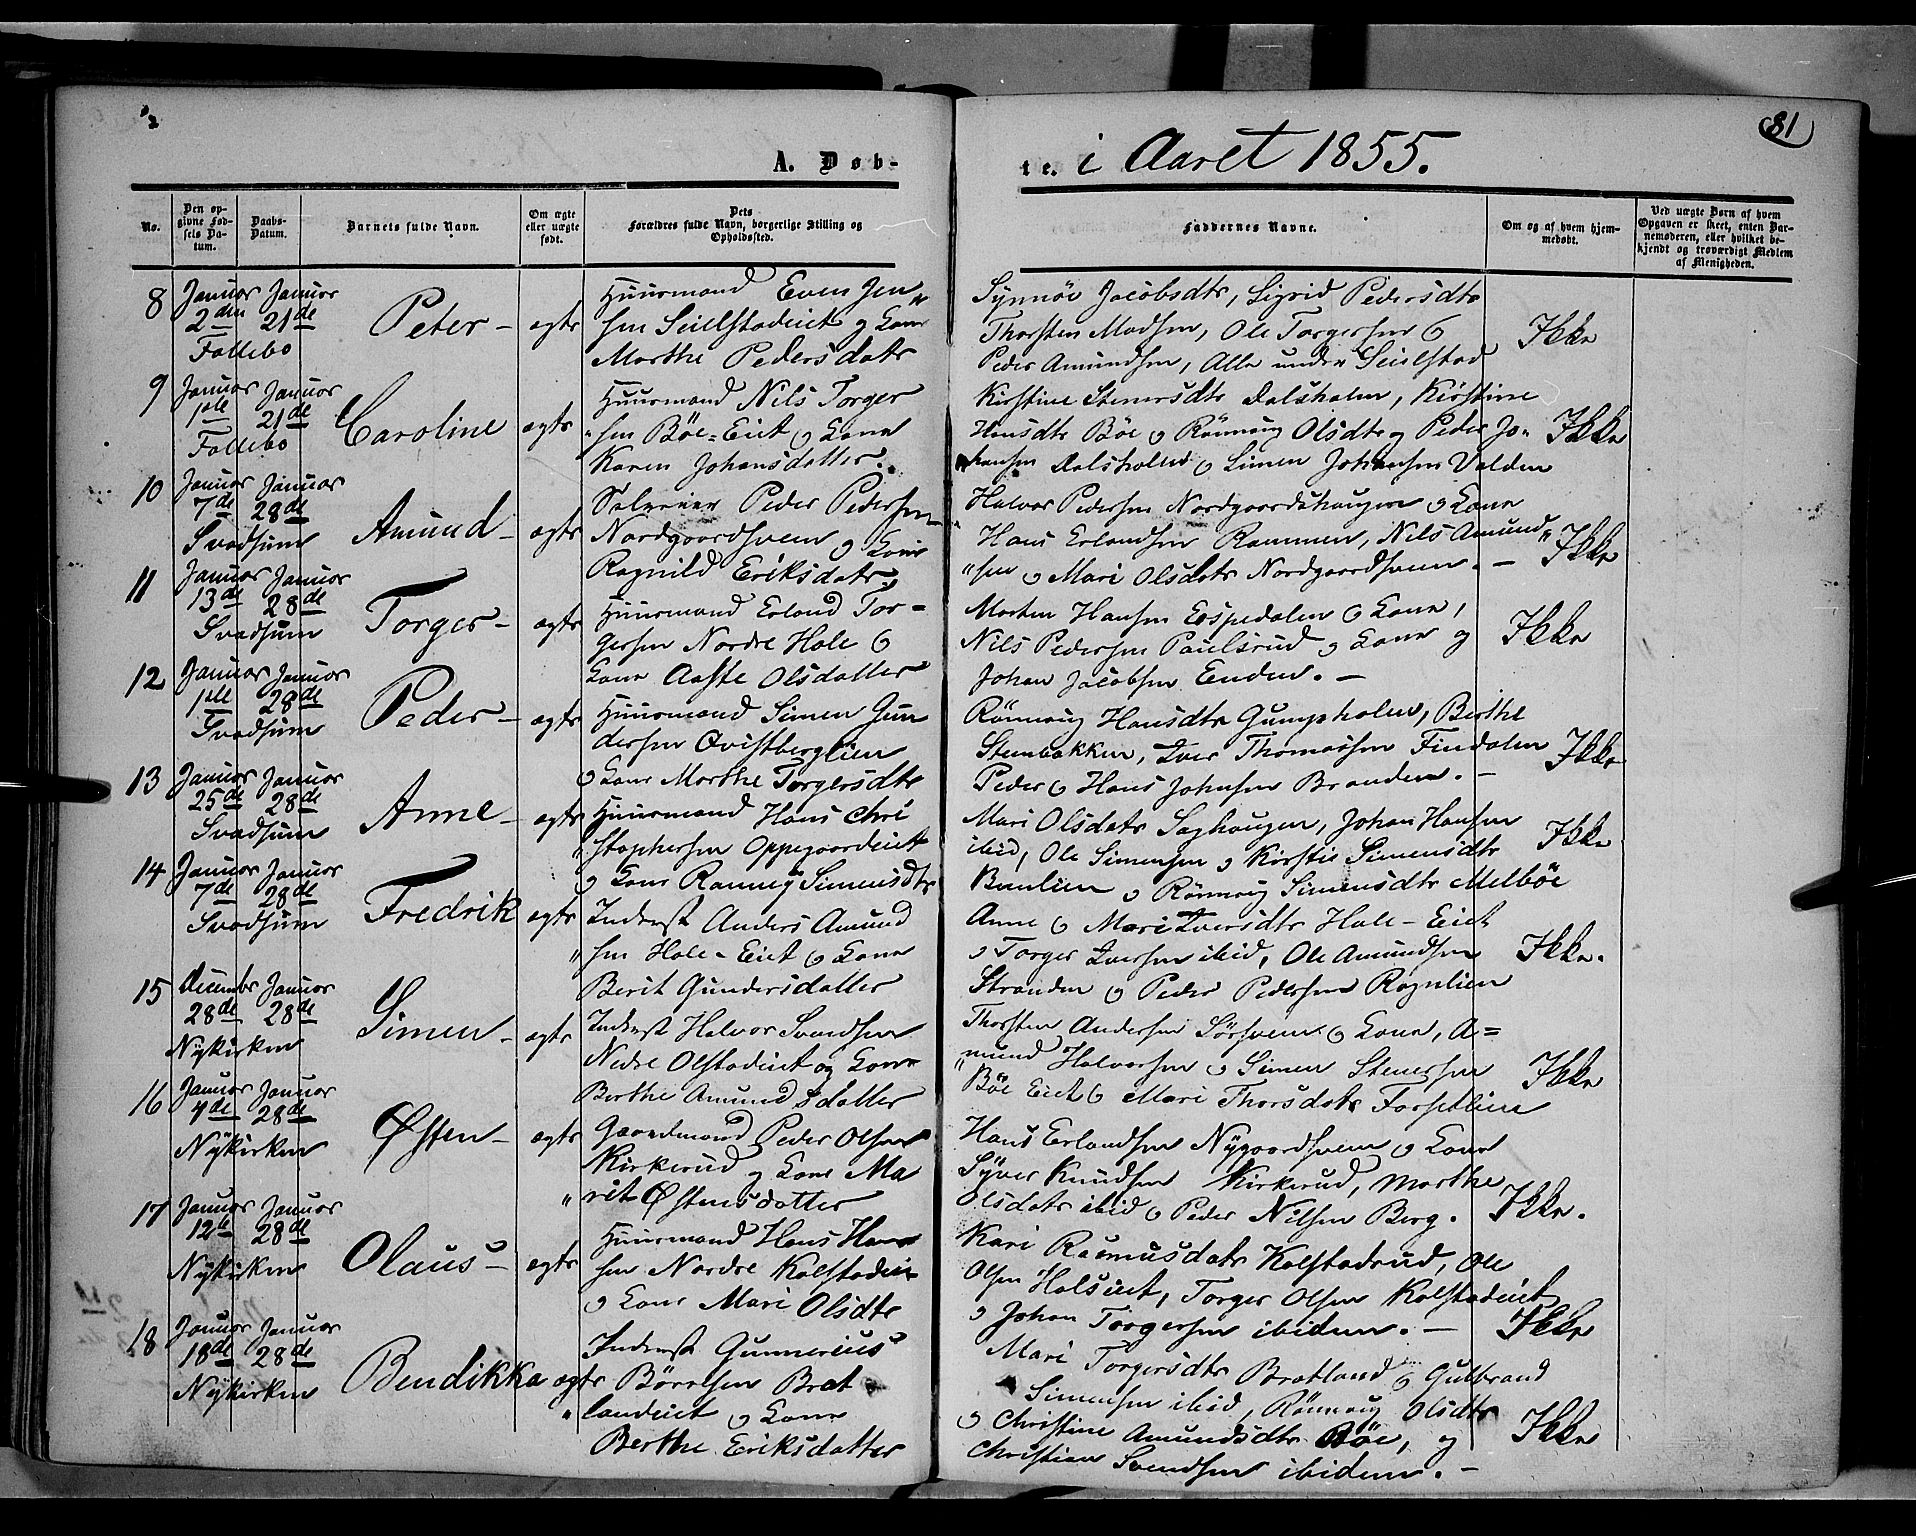 A. Døb-
te. i Aaret 1855.
81
No.
Den op-
givne Fød-
sels Da-
tum.
Daabs-
Datum.
Barnets fulde Navn.
Om ægte
eller uægte
født.
Dets
Forældres fulde Navn, borgerlige Stilling og
Opholdssted.
Faddernes Navne.
Om og af hvem hjem-
medøbt.
Ved uægte Børn af hvem
Opgaven er skeet, enten Bar-
nemoderen, eller hvilket be-
kjendt og troværdigt Medlem
af Menigheden.
8 Januar Januar
2den 21de
Follebo
Peter - ægte
Huusmand Even Jen
sen Seielstadeiet og Kone
Marthe Pedersdatr
Synnøv Jacobsdtr, Sigrid Pedersdtr
Thorsten Madsen, Ole Torgersen &
Peder Amundsen, Alle under Seielstad
Ikke
9 Januar Januar
1ste 21de
Follebo
Caroline ægte
Huusmand Nils Torger
"sen Bøe-Eiet & Kone
Karen Johansdatter.
Kirstine Stenersdtr Dalsholen, Kirstine
Hansdtr Bøe & Rønnoug Olsdtr og Peder Jo-
hansen Dalsholen & Simen Johansen Valden
Ikke
10 Januar Januar
7de 28de
Svadsum
Amund - ægte
Selveier Peder Pedersen
Nordgaardsveen & Kone
Ragnild Eriksdatr,
Halvor Pedersen Nordgaardshaugen & Kone
Hans Erlandsen Rammen, Nils Amund"
"sen & Mari Olsdatr Nordgaardsveen. -
Ikke
11 Januar Januar
13de 28de
Svadsum
Torger - ægte
Huusmand Erland Tor-
gersen Nordre Hole &
Kone Aaste Olsdatter
Morten Hansen Espedalen & Kone,
Nils Pedersen Paulsrud & Kone og
Johan Jacobsen Enden. -
Ikke
12 Januar Januar
1ste 28de
Svadsum
Peder - ægte
Huusmand Simen Gun
dersen Qvistberglien
& Kone Marthe Torgersdtr
Rønnoug Hansdtr Gumpholen, Berthe
Stenbakken, Iver Thomassen Findalen
Peder & Hans Johnsen Branden. -
Ikke
13 Januar Januar
25de 28de
Svadsum
Anne - ægte
Huusmand Hans Chri
"stophersen Oppegaardeiet
& Kone Rønnoug Simensdtr
Mari Olsdatr Saghaugen, Johan Hansen
ibid, Ole Simensen & Kirstie Simensdtr
Bænlien & Rønnoug Simensdtr Melbøe
Ikke
14 Januar Januar
7de 28de
Svadsum
Fredrik ægte
Inderst Anders Amund
"sen Hole-Eiet & Kone
Berit Gundersdatter
Anne & Mari Iversdtr Hole-Eiet
& Torger Iversen ibid, Ole Amundsen
Stranden & Peder Pedersen Rognlien
Ikke.
15 Decembr Januar
28de 28de
Nykirken
Simen - ægte
Inderst Halvor Svendsen
Nedre Olstadeiet og Kone
Berthe Amundsdatter
Thorsten Andersen Sørsveen & Kone, A=
"mund Halvorsen & Simen Stenersen
Bøe Eiet & Mari Thorsdatr Forsetlien
Ikke
16 Januar Januar
4de 28de
Nykirken
Østen - ægte
Gaardmand Peder Olsen
Kirkerud og Kone Ma
"rit Østensdatter
Hans Erlandsen Nygaardsveen & Kone
Syver Knudsen Kirkerud, Marthe
Olsdatr ibid & Peder Nilsen Berg.
Ikke.
17 Januar Januar
12te 28de
Nykirken
Olaus - ægte
Huusmand Hans Han
sen Nordre Kolstadeie
& Kone Mari Olsdtr
Kari Rasmusdatr Kolstadrud, Ole
Olsen Holseiet, Torger Olsen Kolstadeiet
& Johan Torgersen ibidem. -
Ikke
18 Januar Januar
18de 28de
Nykirken
Bendikka ægte
Inderst Gunnerius
Børresen Brat
"landeiet & Kone
Berthe Eriksdatter
Mari Torgersdtr Bratland & Gulbrand
Simensen ibid, Rønnoug Olsdtr
& Christine Amundsdtr Bøe, og
Christian Svendsen ibidem. -
Ikke